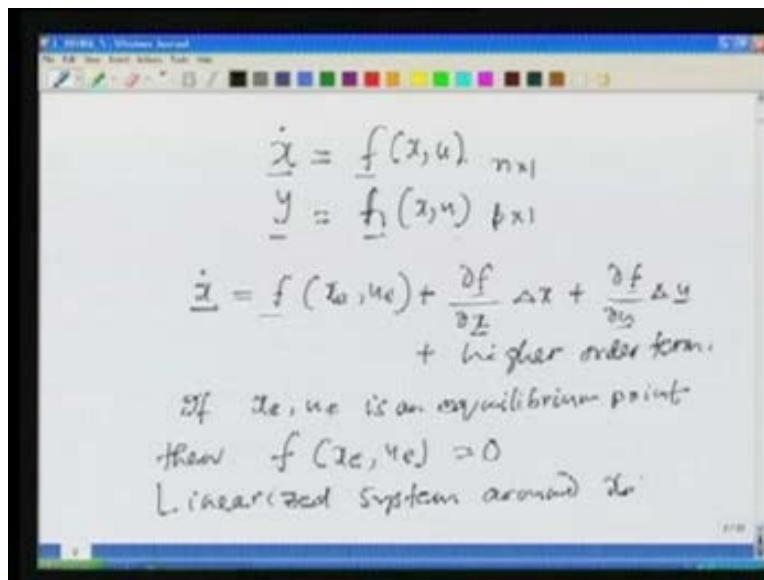 ẋ = f(x,u) n×1
y = h(x,u) p×1
ẋ = f(xe,ue) + ∂f/∂x Δx + ∂f/∂u Δu
+ higher order term.
If xe, ue is an equilibrium point
then f(xe,ue) = 0
Linearized system around xe